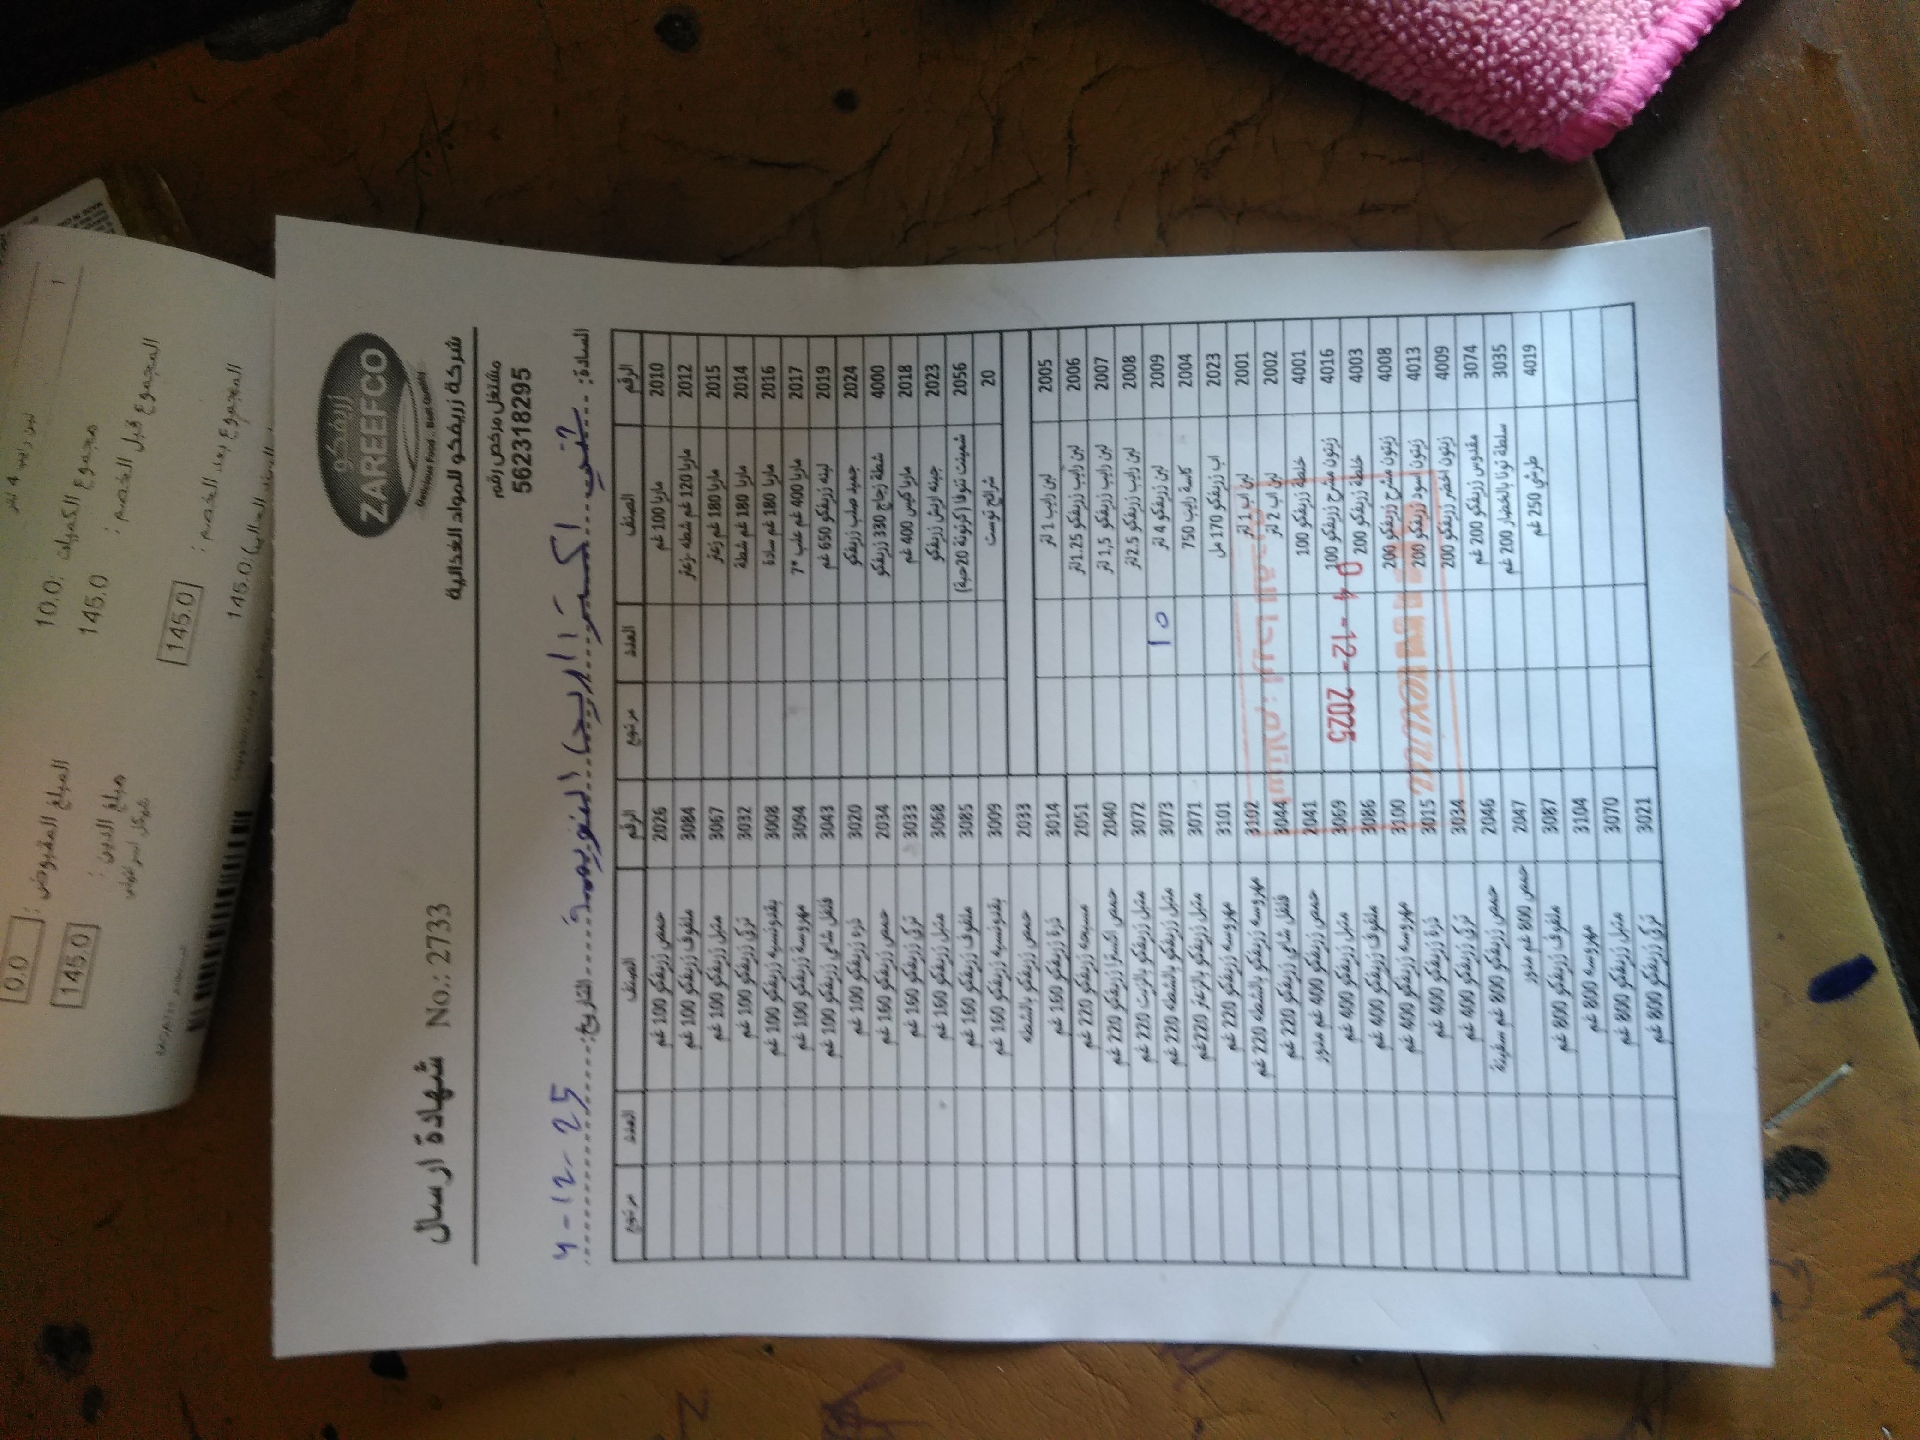 زريفكو
ZAREEFCO
Delicious Food . Best Quality
شركة زريفكو للمواد الغذائية
شهادة ارسال No.: 2733
مشتغل مرخص رقم
562318295
السادة: اكسترا اريحا
التاريخ: 4-12-25
الرقم الصنف العدد مرتجع الرقم الصنف العدد مرتجع
2010 مارنا 100 غم 2026 حمص زريفكو 100 غم
2012 مارنا 120 غم شطه -زعتر 3084 ملفوف زريفكو 100 غم
2015 مارنا 180 غم زعتر 3067 متبل زريفكو 100 غم
2014 مارنا 180 غم شطة 3032 تركي زريفكو 100 غم
2016 مارنا 180 غم سادة 3008 بقدونسيه زريفكو 100 غم
2017 مارنا 400 غم علب *7 3094 مهروسه زريفكو 100 غم
2019 لبنه زريفكو 650 غم 3043 فلفل شامي زريفكو 100 غم
2024 جميد صلب زريفكو 3020 ذره زريفكو 100 غم
4000 شطة زجاج 330 زريفكو 2034 حمص زريفكو 160 غم
2018 مارنا كيس 400 غم 3033 تركي زريفكو 160 غم
2023 جبنه ارتش زريفكو 3068 متبل زريفكو 160 غم
2056 شمينت تنوفا (كرتونة 20حبة) 3085 ملفوف زريفكو 160 غم
20 شرائح توست 3009 بقدونسيه زريفكو 160 غم
2033 حمص زريفكو بالشطه
2005 لبن رايب 1 لتر 3014 ذرة زريفكو 160 غم
2006 لبن رايب زريفكو 1.25لتر 2051 مسبحه زريفكو 220 غم
2007 لبن رايب زريفكو 1,5 لتر 2040 حمص اكسترا زريفكو 220 غم
2008 لبن رايب زريفكو 2.5لتر 3072 متبل زريفكو بالزيت 220 غم
2009 لبن زريفكو 4 لتر 10 3073 متبل زريفكو بالشطه 220 غم
2004 كاسة رايب 750 3071 متبل زريفكو بالزعتر 220غم
2023 اب زريفكو 170 مل 3101 مهروسه زريفكو 220 غم
2001 لبن اب 1 لتر 3102 مهروسه زريفكو بالشطه 220 غم
2002 لبن اب 2 لتر 3044 فلفل شامي زريفكو 220 غم
4001 خلطة زريفكو 100 2041 حمص زريفكو 400 غم مدور
4016 زيتون مشرح زريفكو 100 3069 متبل زريفكو 400 غم
4003 خلطة زريفكو 200 3086 ملفوف زريفكو 400 غم
4008 زيتون مشرح زريفكو 200 3100 مهروسه زريفكو 400 غم
4013 زيتون اسود زريفكو 200 3015 ذرة زريفكو 400 غم
4009 زيتون اخضر زريفكو 200 3034 تركي زريفكو 400 غم
3074 مقدوس زريفكو 200 غم 2046 حمص زريفكو 800 غم سفينة
3035 سلطة تونا بالخضار 200 غم 2047 حمص 800 غم مدور
4019 طرشي 250 غم 3087 ملفوف زريفكو 800 غم
3104 مهروسه 800 غم
3070 متبل زريفكو 800 غم
3021 تركي زريفكو 800 غم
04-12-2025
لبن رايب 4 لتر 1
مجموع الكميات : 10.0
المجموع قبل الخصم : 145.0
المجموع بعد الخصم : 145.0
145.0
المبلغ المقبوض : 0.0
مبلغ الدين : 145.0